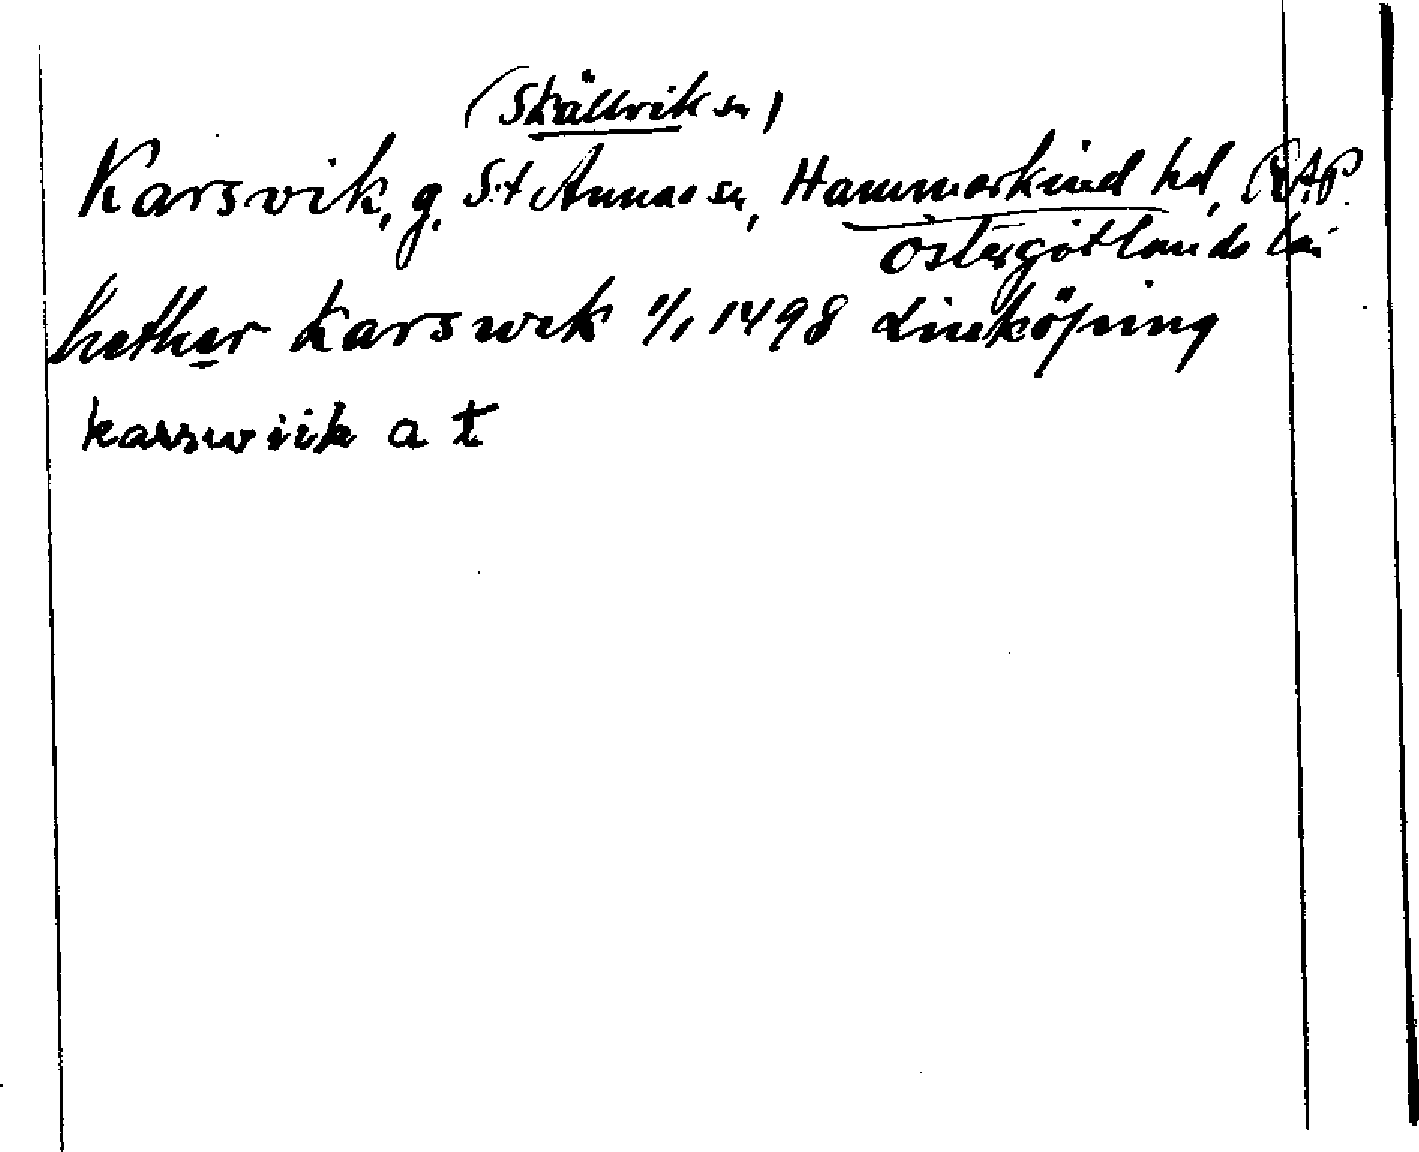 (Skällvik sn)
Karsvik, g. S:t Annas sn, Hammarkind hd, RAP.
Östergötlands län
hether Karswek 1/1 1498 Linköping
karswiik a t